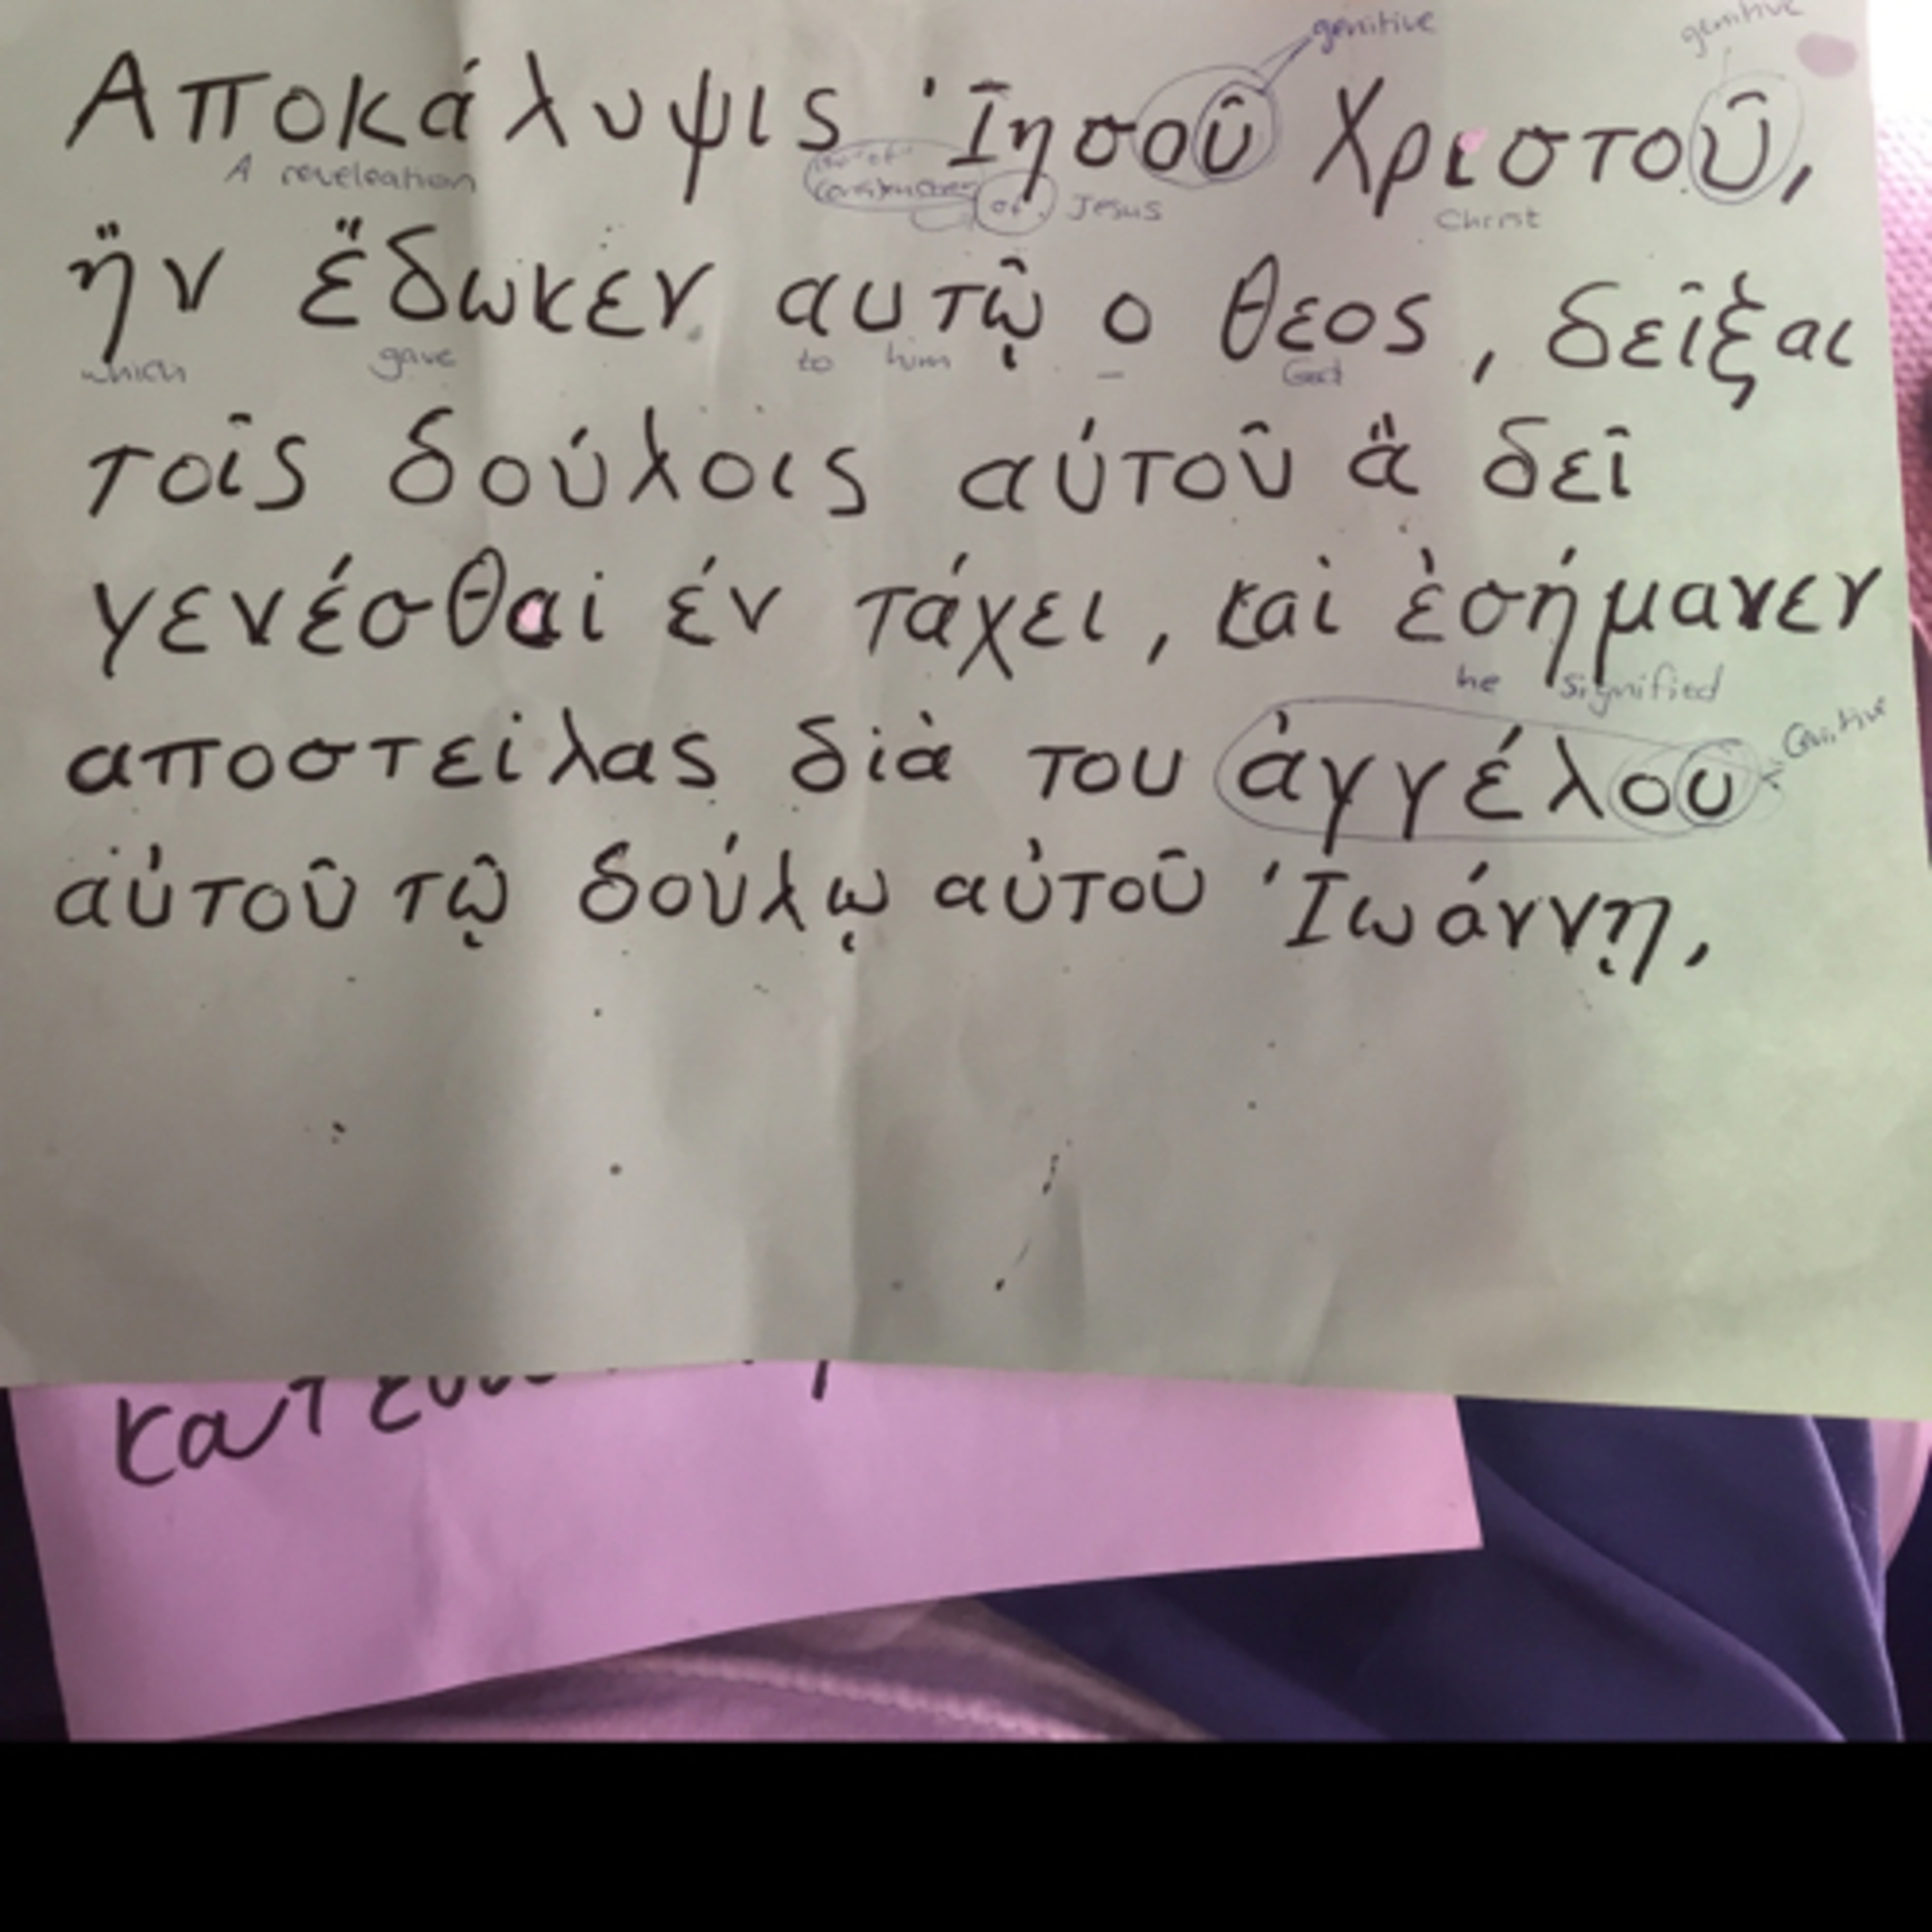 genitive genitive
Αποκάλυψις ᾿Ιησοῦ Χριστοῦ,
A reveleation of Jesus Christ
ἥν ἔδωκεν αυτῷ ο θεος, δεῖξαι
which gave to him – God
τοῖς δούλοις αύτοῦ ἅ δεῖ
γενέσθαί έν τάχει, καὶ ἐσήμανεν
he signified
αποστείλας διὰ του ἀγγέλου
Genitive
αὐτοῦ τῷ δούλῳ αὐτοῦ ᾿Ιωάννῃ,
κατ